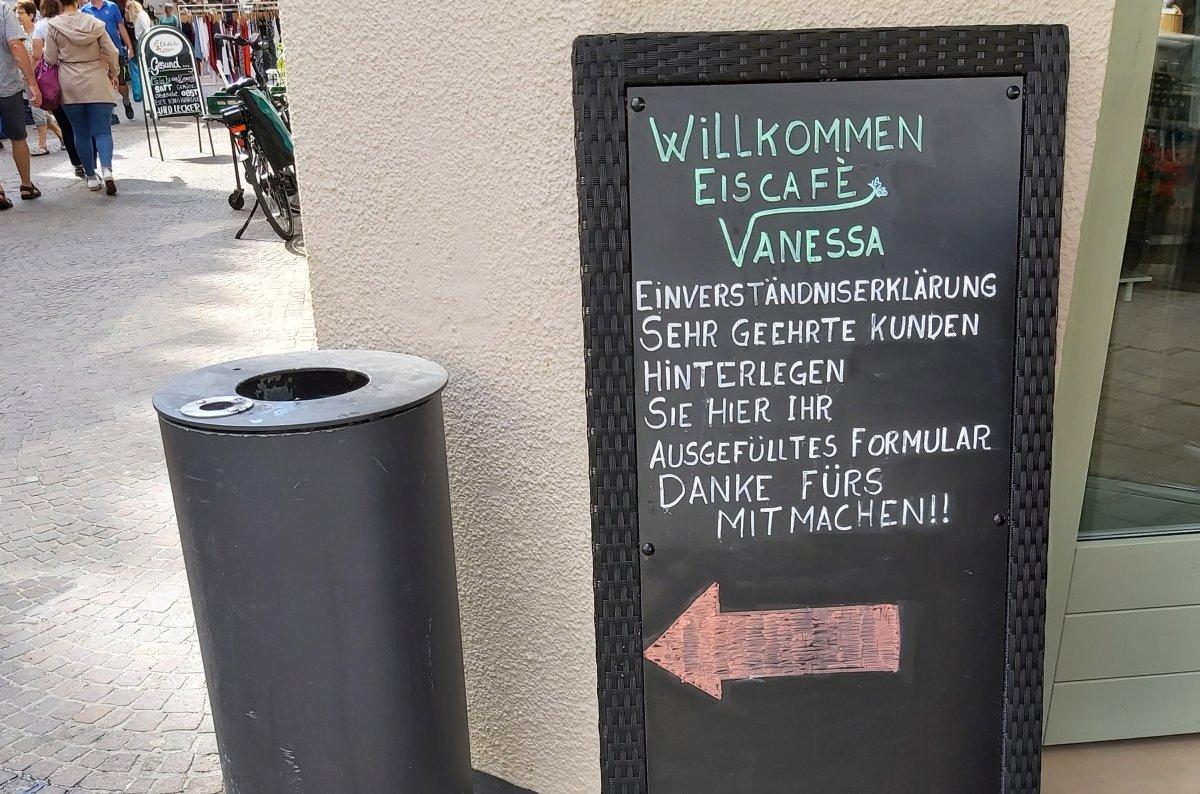 WILLKOMMEN
EISCAFÈ
VANESSA
EINVERSTÄNDNISERKLÄRUNG
SEHR GEEHRTE KUNDEN
HINTERLEGEN
SIE HIER IHR
AUSGEFÜLLTES FORMULAR
DANKE FÜRS
MITMACHEN!!
Gesund...
SATT
OBST
UND LECKER